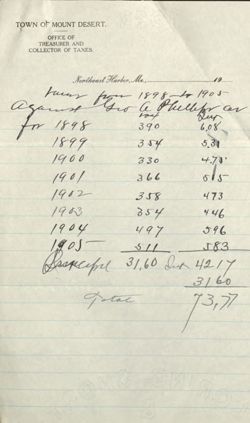 TOWN OF MOUNT DESERT.
OFFICE OF
TREASURER AND
COLLECTOR OF TAXES.
Northeast Harbor, Me., 19
taxes from 1898 to 1905
Against Geo A Phillips as
tax Int
for 1898 390 6,08
1899 354 5,31
1900 330 4,75
1901 366 515
1902 358 473
1903 354 446
1904 497 596
1905 511 583
Principal 31,60 Int 4217
3160
Total 73,77